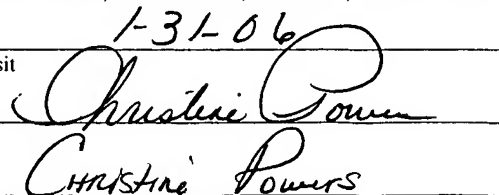 1-31-06
sit
Christine Powers
Christine Powers